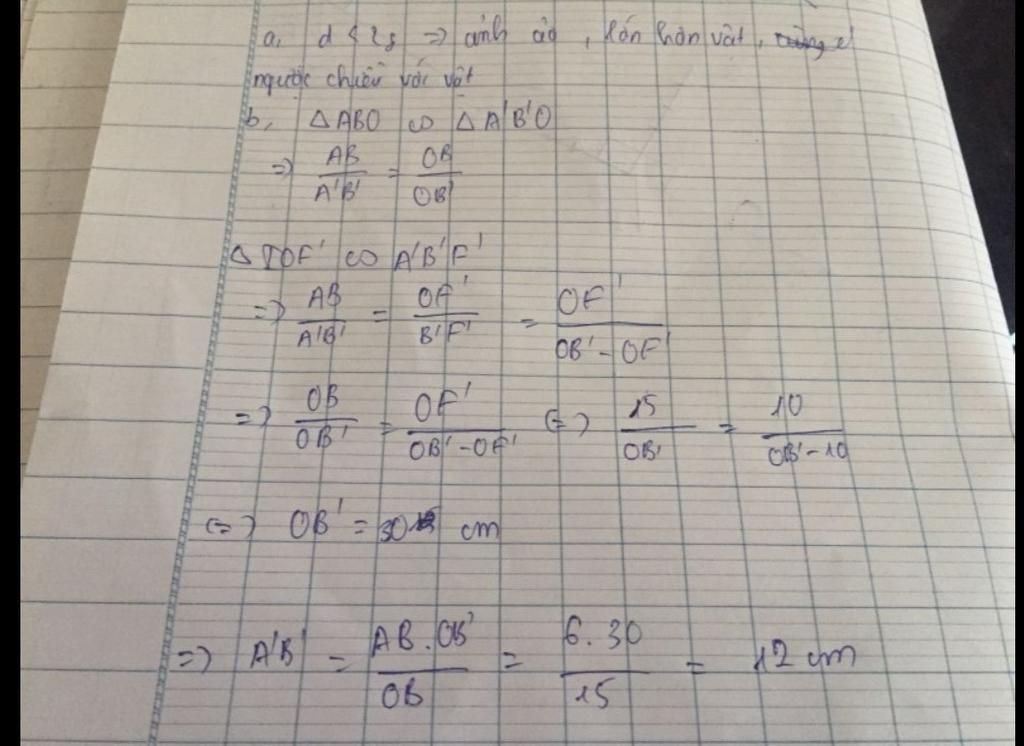 a, d < 2f => ảnh ảo, lớn hơn vật,
ngược chiều với vật
b, △ABO ∽ △A'B'O
=> AB/A'B' = OB/OB'
△IOF' ∽ A'B'F'
=> AB/A'B' = OF'/B'F' = OF'/(OB' - OF')
=> OB/OB' = OF'/(OB' - OF') (=) 15/OB' = 10/(OB' - 10)
(=) OB' = 30 cm
=> A'B' = AB . OB'/OB = 6 . 30/15 = 12 cm